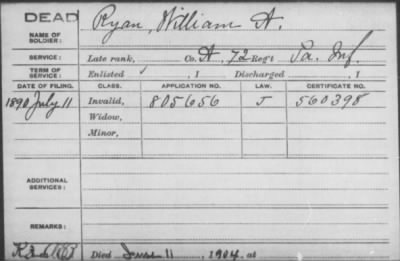 DEAD
NAME OF SOLDIER: Ryan, William A.
SERVICE: Late rank, Co. A, 72 Reg't Pa. Inf.
TERM OF SERVICE: Enlisted , 1 Discharged , 1
DATE OF FILING. CLASS. APPLICATION NO. LAW. CERTIFICATE NO.
1890 July 11 Invalid, 805656 J 560398
Widow,
Minor,
ADDITIONAL SERVICES:
REMARKS:
Died June 11, 1904, at